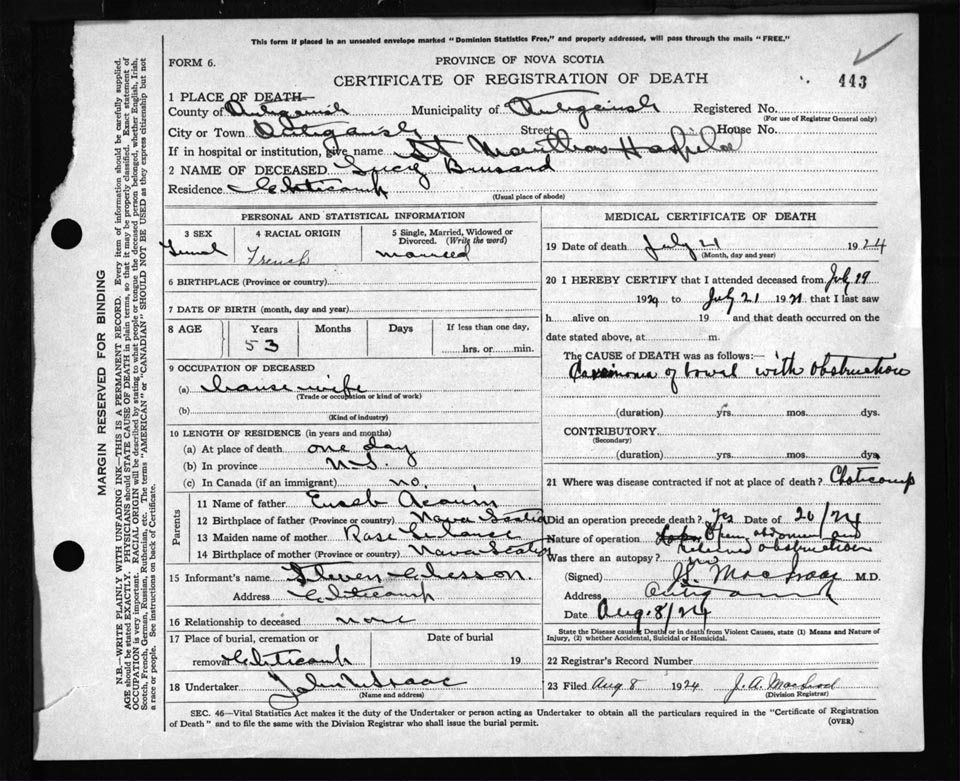 This form if placed in an unsealed envelope marked "Dominion Statistics Free," and properly addressed, will pass through the mails "FREE."
FORM 6.
PROVINCE OF NOVA SCOTIA
CERTIFICATE OF REGISTRATION OF DEATH
443
1 PLACE OF DEATH—
County of Antigonish Municipality of Antigonish Registered No.
(For use of Registrar General only)
City or Town Antigonish Street House No.
If in hospital or institution, give name St Marthas Hospital
2 NAME OF DECEASED
Residence Cheticamp
(Usual place of abode)
MARGIN RESERVED FOR BINDING
N.B.—WRITE PLAINLY WITH UNFADING INK—THIS IS A PERMANENT RECORD. Every item of information should be carefully supplied.
AGE should be stated EXACTLY. PHYSICIANS should STATE CAUSE OF DEATH in plain terms, so that it may be properly classified. Exact statement of
OCCUPATION is very important. RACIAL ORIGIN will be described by stating to what people or tongue the deceased person belonged, whether English, Irish,
Scotch, French, German, Russian, Ruthenian, etc. The terms "AMERICAN" or "CANADIAN" SHOULD NOT BE USED as they express citizenship but not
a race or people. See instructions on back of Certificate.
PERSONAL AND STATISTICAL INFORMATION
3 SEX
4 RACIAL ORIGIN
French
5 Single, Married, Widowed or
Divorced. (Write the word)
married
6 BIRTHPLACE (Province or country)
7 DATE OF BIRTH (month, day and year)
8 AGE Years Months Days If less than one day,
53 hrs. or min.
9 OCCUPATION OF DECEASED
(a) housewife
(Trade or occupation or kind of work)
(b)
(Kind of industry)
10 LENGTH OF RESIDENCE (in years and months)
(a) At place of death one day
(b) In province N.S.
(c) In Canada (if an immigrant) no.
Parents
11 Name of father Euseb
12 Birthplace of father (Province or country) Nova Scotia
13 Maiden name of mother Rose
14 Birthplace of mother (Province or country) Nova Scotia
15 Informant's name Steven
Address Cheticamp
16 Relationship to deceased none
17 Place of burial, cremation or Date of burial
removal Cheticamp 19
18 Undertaker
(Name and address)
MEDICAL CERTIFICATE OF DEATH
19 Date of death July 21 1924
(Month, day and year)
20 I HEREBY CERTIFY that I attended deceased from July 19
1924 to July 21 1924 that I last saw
h alive on 19 and that death occurred on
date stated above, at m.
The CAUSE OF DEATH was as follows:—
Carcinoma of bowel with obstruction
(duration) yrs. mos. dys.
CONTRIBUTORY
(Secondary)
(duration) yrs. mos. dys.
21 Where was disease contracted if not at place of death? Cheticamp
Did an operation precede death? Yes Date of 20/24
Nature of operation Open abdomen and
relieved obstruction
Was there an autopsy? no
(Signed) MacIsaac M.D.
Address Antigonish
Date Aug. 8/24
State the Disease causing Death, or in death from Violent Causes, state (1) Means and Nature of
Injury, (2) whether Accidental, Suicidal or Homicidal.
22 Registrar's Record Number
23 Filed Aug 8 1924 J. A. MacLeod
(Division Registrar)
SEC. 46—Vital Statistics Act makes it the duty of the Undertaker or person acting as Undertaker to obtain all the particulars required in the "Certificate of Registration
of Death" and to file the same with the Division Registrar who shall issue the burial permit.
(OVER)